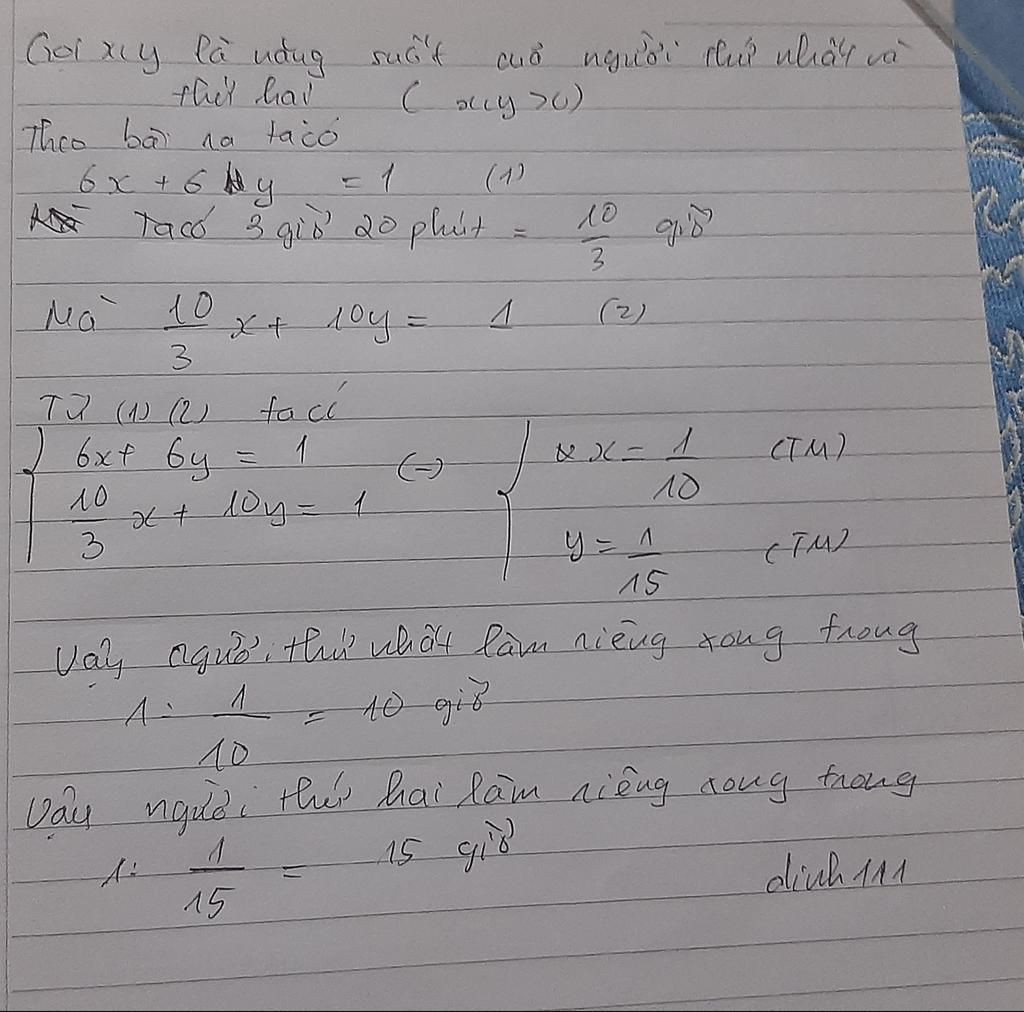 Gọi x,y là năng suất cuả người thứ nhất và
thứ hai ( x,y >0)
Theo bài ra ta có
6x + 6y = 1 (1)
Ta có 3 giờ 20 phút = 10/3 giờ
Mà 10/3 x + 10y = 1 (2)
Từ (1) (2) ta có
{ 6x + 6y = 1 (-) { x = 1/10 (TM)
10/3 x + 10y = 1 y = 1/15 (TM)
Vậy người thứ nhất làm riêng xong trong
1: 1/10 = 10 giờ
Vậy người thứ hai làm riêng xong trong
1: 1/15 = 15 giờ
dinh111